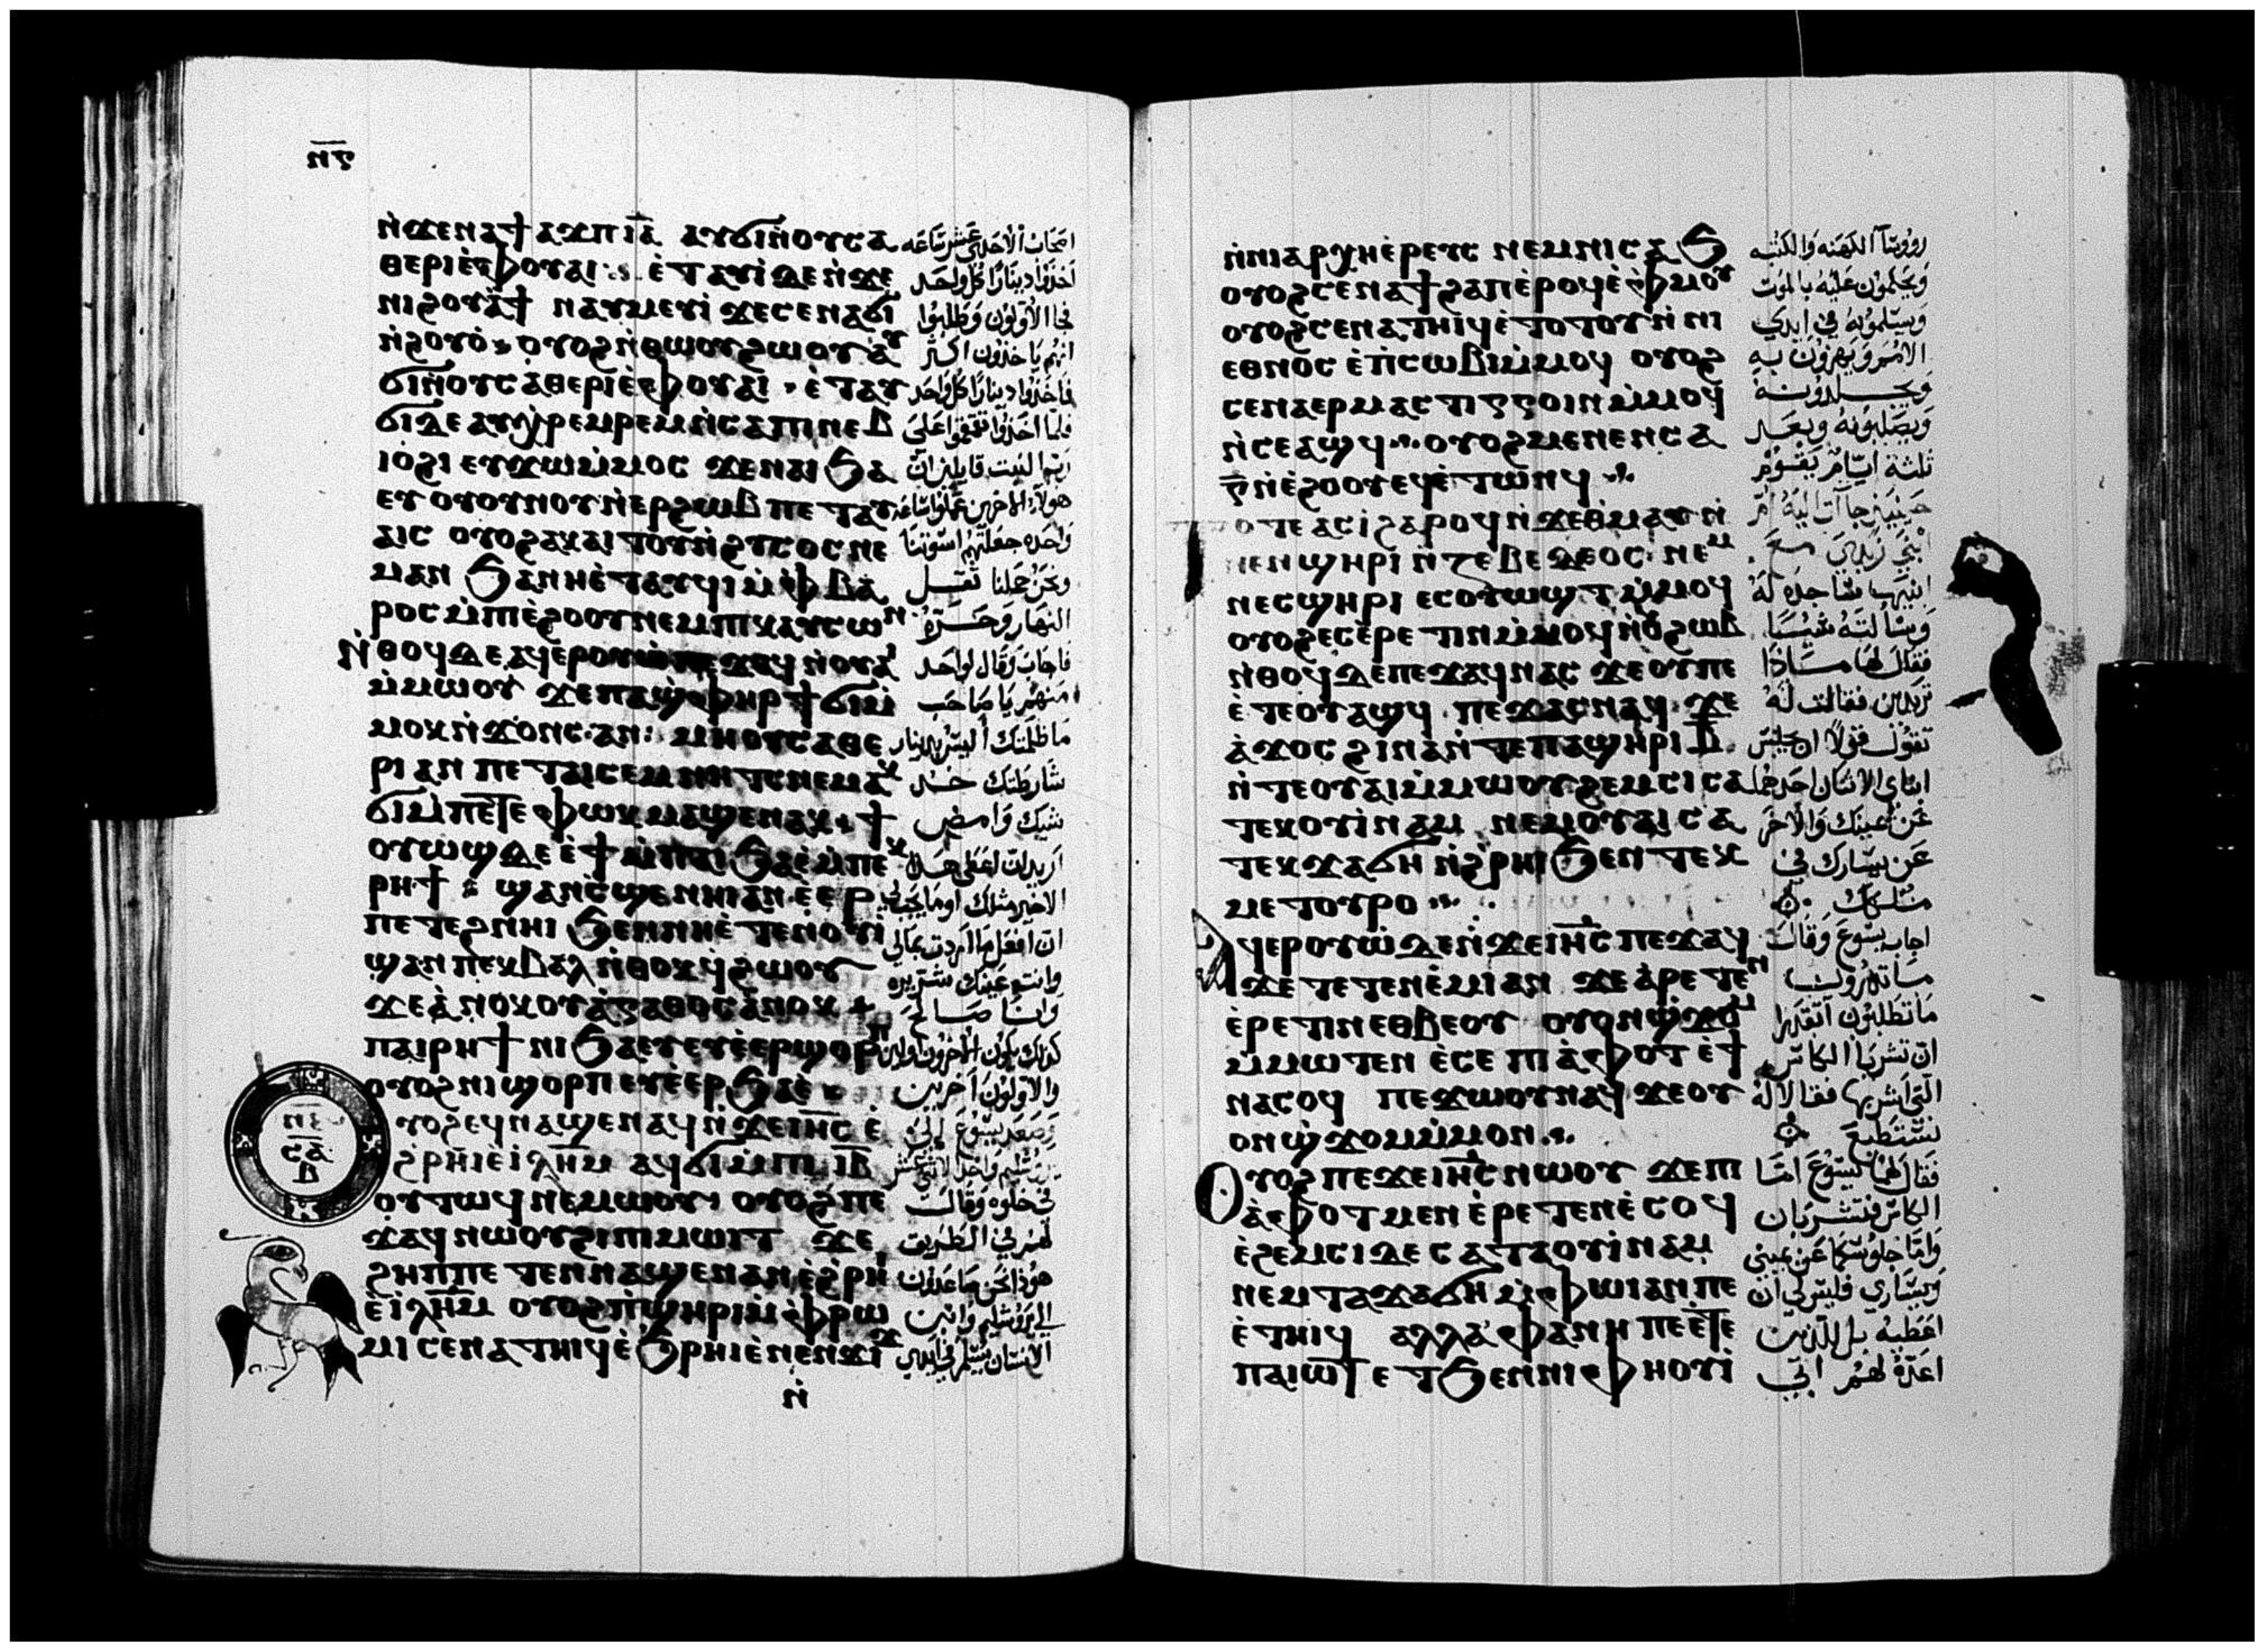 ⲡⲋ
ⲛ̀ϫⲉⲛⲁϯⲁϫⲡⲓⲁ̅ ⲁⲩϭⲓⲛ̀ⲟⲩⲥⲁ
ⲑⲉⲣⲓⲉ̀ⲫⲟⲩⲁⲓ ⲉ̀ⲧⲁⲩⲓ̀ⲇⲉⲛ̀ϫⲉ
ⲛⲓϩⲟⲩⲁ̀ϯ ⲛⲁⲩⲙⲉⲩⲓ̀ ϫⲉⲥⲉⲛⲁϭⲓ
ⲛ̀ϩⲟⲩⲟ̀ ⲟⲩⲟϩⲛ̀ⲑⲱⲟⲩϩⲱⲟⲩⲁⲩ
ϭⲓⲛ̀ⲟⲩⲥⲁⲑⲉⲣⲓⲉ̀ⲫⲟⲩⲁⲓ ⲉ̀ⲧⲁⲩ
ϭⲓⲇⲉ ⲁⲩⲭ̀ⲣⲉⲙⲣⲉⲙⲛ̀ⲥⲁⲡⲓⲛⲉⲃ
ⲓⲟ̀ϩⲓ ⲉⲩϫⲱⲙ̀ⲙⲟⲥ ϫⲉⲛⲁⲓϧⲁ
ⲉⲩ ⲟⲩⲟⲩⲛⲟⲩⲛ̀ⲉⲣϩⲱⲃ ⲡⲉⲧⲁⲩ
ⲁⲓⲥ ⲟⲩⲟϩⲁⲕⲁⲓⲧⲟⲩⲛ̀ϩⲩⲥⲟⲥ ⲛⲉ
ⲙⲁⲛ ϧⲁⲛⲏⲉ̀ⲧⲁⲩϥⲓⲙ̀ⲫⲃⲁ
ⲣⲟⲥ ⲙ̀ⲡⲓⲉ̀ϩⲟⲟⲩⲛⲉⲙⲡⲓⲕⲁⲩⲥⲱⲛ
ⲛ̀ⲑⲟϥⲇⲉ ⲁϥⲉⲣⲟⲩⲱ ⲡⲉϫⲁϥ ⲛ̀ⲟⲩⲁⲓ
ⲙ̀ⲙⲱⲟⲩ ϫⲉⲡⲁϣ̀ⲫⲏⲣ ϯϭⲓⲙ̀
ⲙⲟⲕⲛ̀ϫⲟⲛⲥ ⲁⲛ ⲙⲏⲟⲩⲥⲁⲑⲉ
ⲣⲓ ⲁⲛ ⲡⲉⲧⲁⲓⲥⲉⲙⲛⲏⲧⲥⲛⲉⲙⲁⲕ
ϭⲓⲙ̀ⲡⲉⲧⲉ ⲫⲱⲕ ⲙⲁϣⲉⲛⲁⲕ ϯ
ⲟⲩⲱϣⲇⲉ ⲉ̀ϯⲙ̀ⲡⲁⲓϧⲁⲉ̀ ⲙ̀ⲡⲉⲕ
ⲣⲏϯ ϣⲁⲛⲥ̀ϣⲉⲛⲏⲓⲁⲛ ⲉ̀ⲉⲣ
ⲡⲉⲧⲉϩⲛⲏⲓ ϧⲉⲛⲛⲏⲉ̀ⲧⲉⲛⲟⲩⲓ
ϣⲁⲛ ⲡⲉⲕⲃⲁⲗ ⲛ̀ⲑⲟⲕ ϥϩⲱⲟⲩ
ϫⲉⲁ̀ⲛⲟⲕ ⲟⲩⲁ̀ⲅⲁⲑⲟⲥ ⲁ̀ⲛⲟⲕ
ⲡⲁⲓⲣⲏϯ ⲛⲓϧⲁⲉⲩ ⲉⲩⲉ̀ⲉⲣϣⲟⲣⲡ
ⲟⲩⲟϩ ⲛⲓϣⲟⲣⲡ ⲉⲩⲉ̀ⲉⲣϧⲁⲉ̀
ⲟⲩⲟϩⲉϥⲛⲁϣⲉⲛⲁϥⲛ̀ϫⲉⲓⲏ̅ⲥ ⲉ̀
ϩⲣⲏⲓⲉ̀ⲓⲗⲏ̅ⲙ ⲁϥϭⲓⲙ̀ⲡⲓⲓ̅ⲃ
ⲟⲩⲧⲱϥ ⲛⲉⲙⲱⲟⲩ ⲟⲩⲟϩ ⲡⲉ
ϫⲁϥⲛⲱⲟⲩϩⲓⲡⲓⲙⲱⲓⲧ ϫⲉ
ϩⲏⲡⲡⲉ ⲧⲉⲛⲛⲁϣⲉⲛⲁⲛ ⲉ̀ϩⲣⲏⲓ
ⲉ̀ⲓⲗⲏ̅ⲙ ⲟⲩⲟϩ ⲡ̀ϣⲏⲣⲓⲙ̀ⲫⲣⲱ
ⲙⲓ ⲥⲉⲛⲁⲧⲏⲓϥ ⲉ̀ϧⲣⲏⲓ ⲉ̀ⲛⲉⲛϫⲓϫ
ⲛ̀
اصحاب الاحدى عشر ساعه
اخذوا دينارا كل واحد
فجا الاولون وظنوا
انهم ياخذون اكثر
فاخذوا دينارا كل واحد
فلما اخذوا تقمقموا على
رب البيت قايلين ان
هولاء الاخرين عملوا ساعة
واحده جعلتهم اسوتنا
ونحن حملنا ثقل
النهار وحره
فاجاب وقال لواحد
منهم يا صاحب
ما ظلمتك اليس بدينار
شارطتك خذ
شيك وامض
اريد ان اعطي هذا
الاخير مثلك او ما يجب لي
ان افعل ما اردت بمالي
وانت عينك شريره
وانا صالح
كذلك يكون الاخرون اولين
والاولون اخرين
وصعد يسوع الى
يروشليم واخذ الاثني عشر
في خلوه وقال
لهم في الطريق
هوذا نحن صاعدون
الى يروشليم وابن
الانسان يسلم في ايدي
ⲛ̀ⲛⲓⲁⲣⲭⲏⲉⲣⲉⲩⲥ ⲛⲉⲙⲛⲓⲥⲁϧ
ⲟⲩⲟϩⲥⲉⲛⲁϯϩⲁⲡⲉ̀ⲣⲟϥⲉ̀ⲫⲙⲟⲩ
ⲟⲩⲟϩⲥⲉⲛⲁⲧⲏⲓϥⲉ̀ⲧⲟⲧⲟⲩⲛ̀ⲛⲓ
ⲉⲑⲛⲟⲥ ⲉ̀ⲡ̀ⲥⲱⲃⲓⲙ̀ⲙⲟϥ ⲟⲩⲟϩ
ⲥⲉⲛⲁⲉⲣⲙⲁⲥⲧⲓⲅⲅⲟⲓⲛⲙ̀ⲙⲟϥ
ⲛ̀ⲥⲉⲁϣϥ ⲟⲩⲟϩⲙⲉⲛⲉⲛⲥⲁ
ⲅ̅ⲛ̀ⲉ̀ϩⲟⲟⲩ ⲉϥⲉ̀ⲧⲱⲛϥ
ⲟⲧⲉ ⲁⲥⲓ̀ϩⲁⲣⲟϥⲛ̀ϫⲉⲑⲙⲁⲩⲛ̀
ⲛⲉⲛϣⲏⲣⲓ ⲛ̀ⲍⲉⲃⲉⲇⲉⲟⲥ ⲛⲉⲙ
ⲛⲉⲥϣⲏⲣⲓ ⲉⲥⲟⲩⲱϣⲧ ⲙ̀ⲙⲟϥ
ⲟⲩⲟϩⲉⲥⲉ̀ⲣⲉⲧⲓⲛⲙ̀ⲙⲟϥⲛ̀ⲟⲩϩⲱⲃ
ⲛ̀ⲑⲟϥⲇⲉ ⲡⲉϫⲁϥⲛⲁⲥ ϫⲉⲟⲩⲡⲉ
ⲉ̀ⲧⲉⲟⲩⲁϣϥ ⲡⲉϫⲁⲥⲛⲁϥ ϫⲉ
ⲁ̀ϫⲟⲥ ϩⲓⲛⲁⲛ̀ⲧⲉⲡⲁϣⲏⲣⲓ ⲃ̅
ⲛ̀ⲧⲉⲟⲩⲁⲓⲙ̀ⲙⲱⲟⲩϩⲉⲙⲥⲓ ⲥⲁ
ⲧⲉⲕⲟⲩⲓ̀ⲛⲁⲙ ⲛⲉⲙⲟⲩⲁⲓ ⲥⲁ
ⲧⲉⲕϫⲁϭⲏ ⲛ̀ϩⲣⲏⲓϧⲉⲛ ⲧⲉⲕ
ⲙⲉⲧⲟⲩⲣⲟ
ⲁϥⲉⲣⲟⲩⲱ̀ⲇⲉⲛ̀ϫⲉⲓⲏ̅ⲥ ⲡⲉϫⲁϥ
ϫⲉ ⲧⲉⲧⲉⲛⲉ̀ⲙⲓⲁⲛ ϫⲉⲁ̀ⲣⲉⲧⲉⲛ
ⲉ̀ⲣⲉⲧⲓⲛ ⲉⲑⲃⲉⲟⲩ ⲟⲩⲟⲛϣ̀ϫⲟⲙ
ⲙ̀ⲙⲱⲧⲉⲛ ⲉ̀ⲥⲉ ⲡⲓⲁ̀ⲫⲟⲧ ⲉ̀ϯ
ⲛⲁⲥⲟϥ ⲡⲉϫⲱⲟⲩⲛⲁϥ ϫⲉⲟⲩ
ⲟⲛϣ̀ϫⲟⲙⲙ̀ⲙⲟⲛ
ⲟⲩⲟϩ ⲡⲉϫⲉⲓⲏ̅ⲥ ⲛⲱⲟⲩ ϫⲉⲡⲓ
ⲁ̀ⲫⲟⲧ ⲙⲉⲛ ⲉ̀ⲣⲉⲧⲉⲛⲉ̀ⲥⲟϥ
ⲉ̀ϩⲉⲙⲥⲓⲇⲉ ⲥⲁⲧⲁⲟⲩⲓ̀ⲛⲁⲙ
ⲛⲉⲙ ⲧⲁϫⲁϭⲏ ⲙ̀ⲫⲱⲓⲁⲛⲡⲉ
ⲉ̀ⲧⲏⲓϥ ⲁⲗⲗⲁ ⲫⲁⲛⲏⲡⲉⲉ̀ⲧⲉ
ⲡⲁⲓⲱⲧ ⲉⲧϧⲉⲛⲛⲓⲫⲏⲟⲩⲓ̀
روؤسا الكهنه والكتبه
ويحكمون عليه بالموت
ويسلموه في ايدي
الامم ويهزون به
ويجلدونه
ويصلبونه وبعد
ثلثة ايام يقوم
حينيذ جات اليه ام
ابني زبدي مع
ابنيها ساجده له
وسالته شيا
فقال لها ماذا
تريدين فقالت له
تقول قولا ان يجلس
ابناي الاثنان احدهما
عن يمينك والاخر
عن يسارك في
ملكك
اجاب يسوع وقال
ما تدرون
ما تطلبون اتقدرا
ان تشربا الكاس
التي اشربها فقالا له
نستطيع
فقال لهما يسوع اما
الكاس فتشربان
واما جلوسكما عن يميني
ويساري فليس لي ان
اعطيه بل للذين
اعده لهم ابي